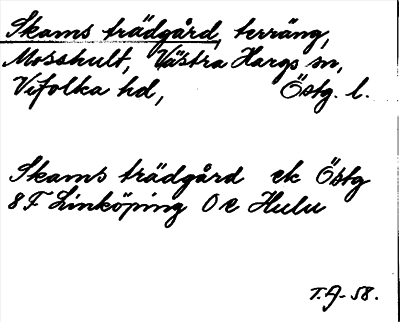 Skams trädgård, terräng,
Mosshult, Västra Hargs sn,
Vifolka hd, Östg. l.
Skams trädgård ek Östg
8F Linköping 0e Hulu
T.A-58.